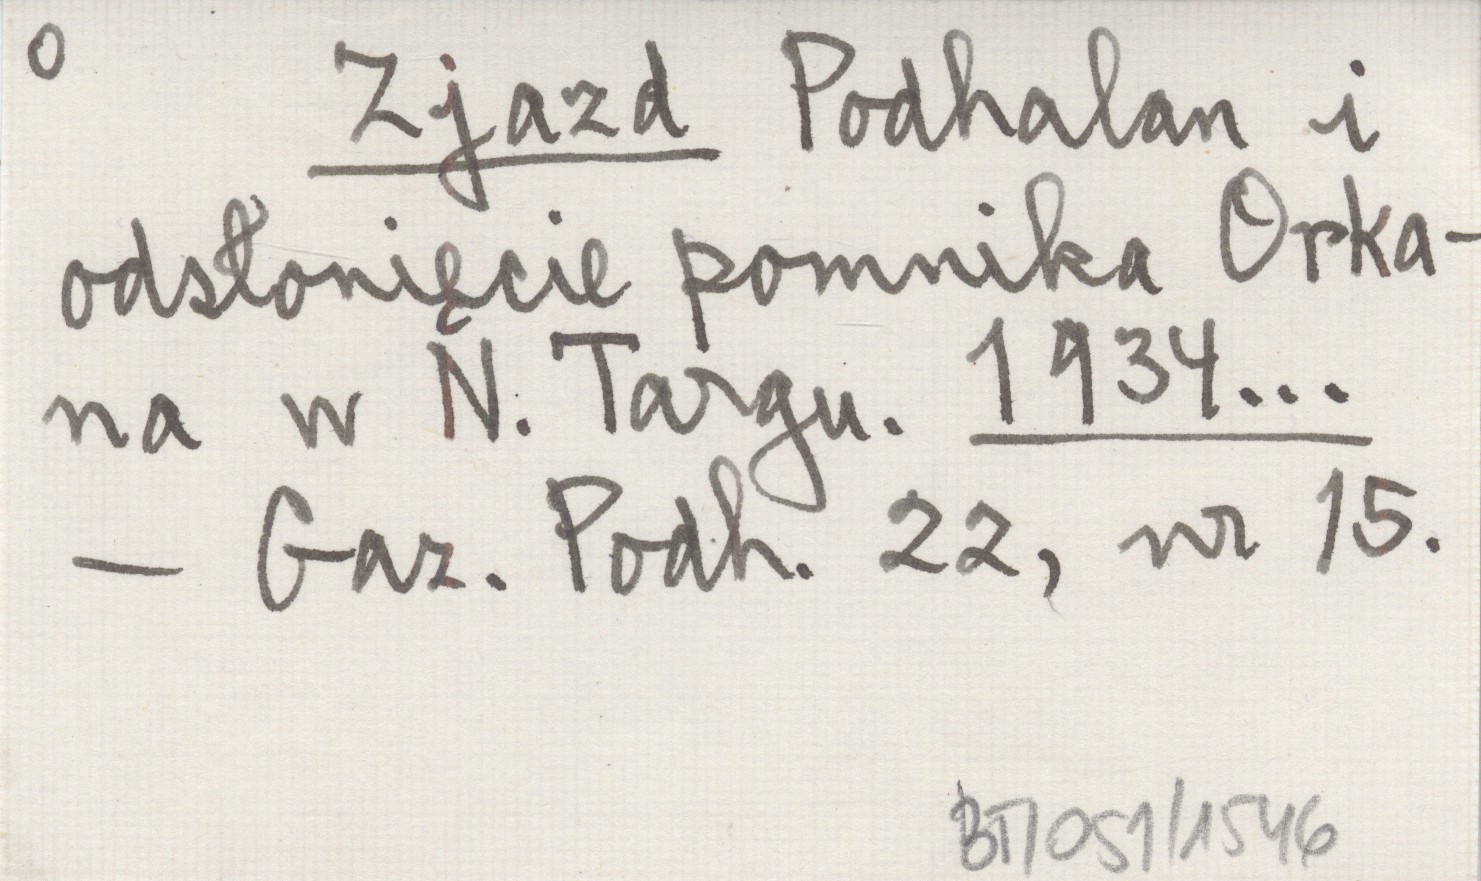 o Zjazd Podhalan i
odsłonięcie pomnika Orka-
na w N. Targu. 1934...
— Gaz. Podh. 22, nr 15.
BT/051/1546